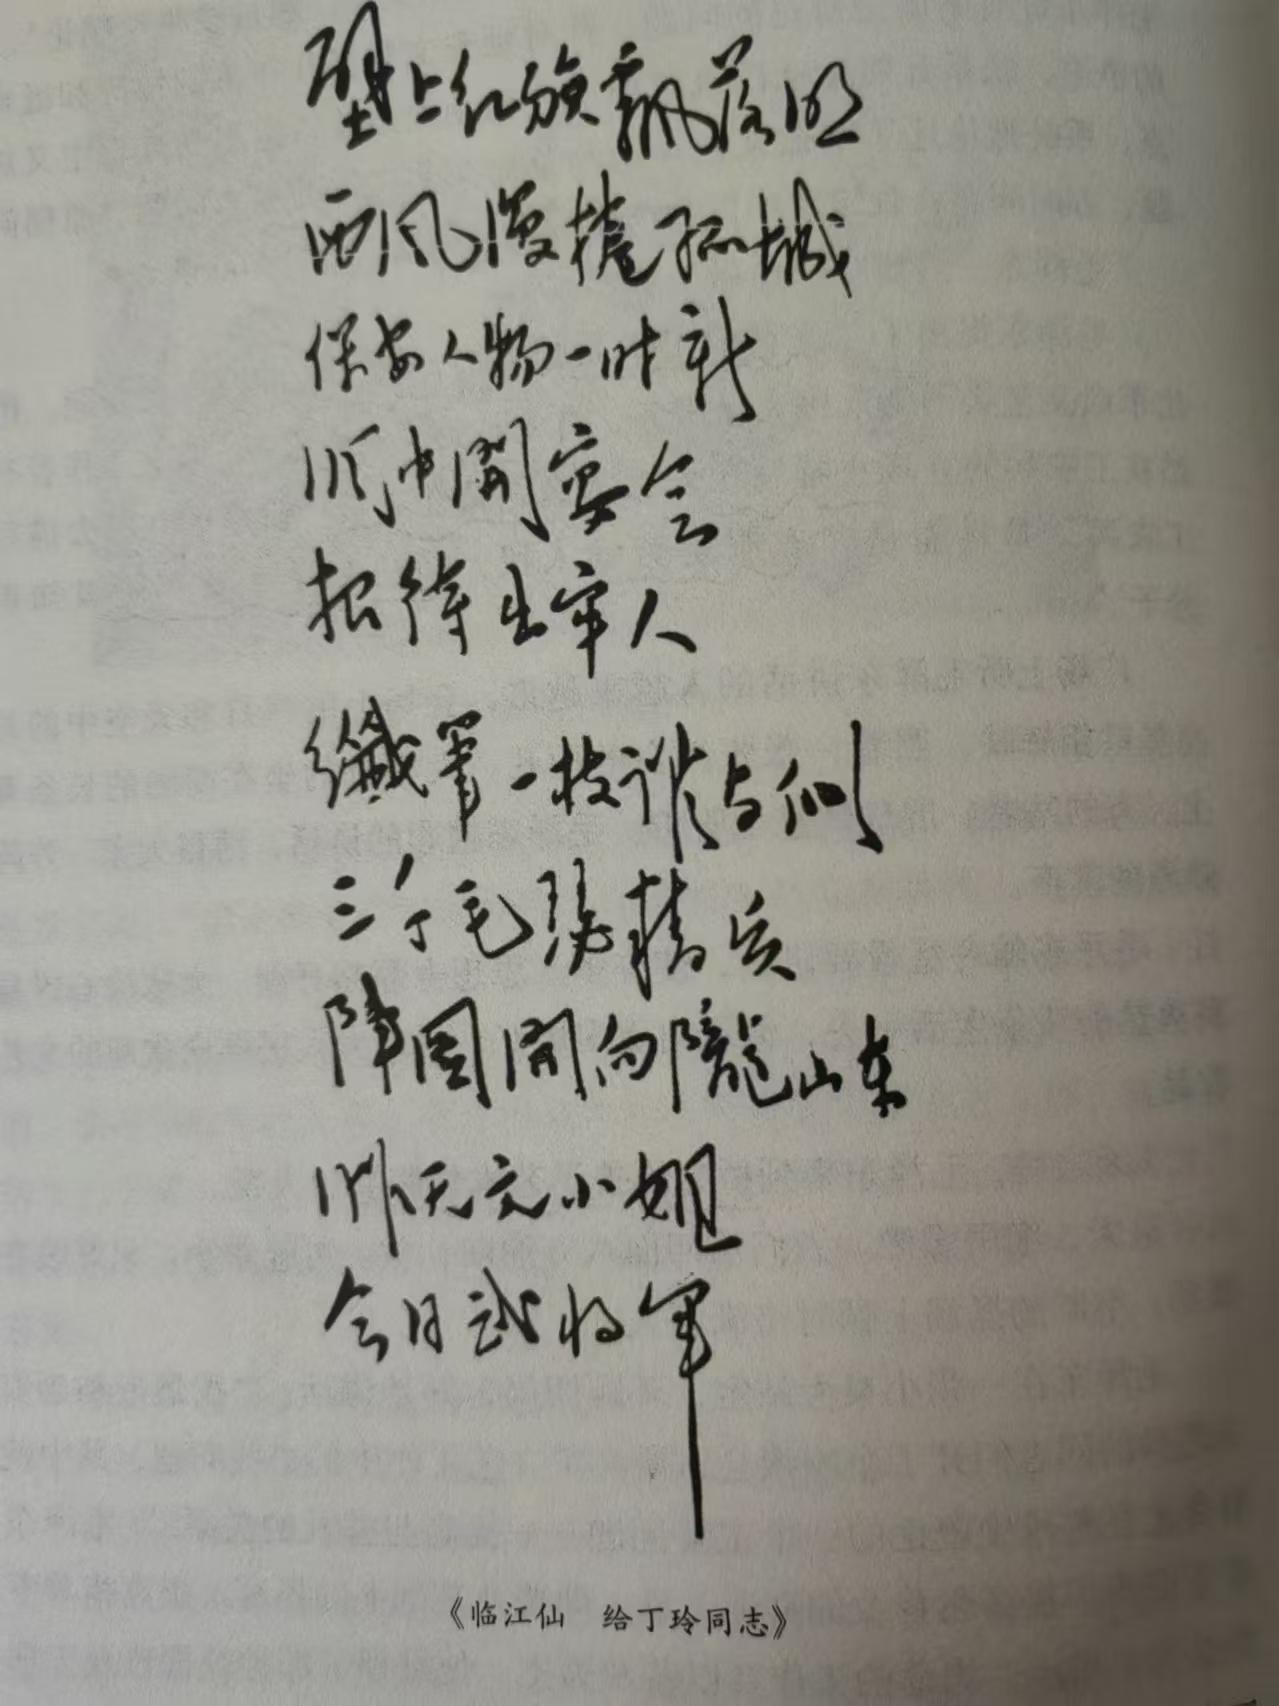 壁上红旗飘落照
西风漫捲孤城
保安人物一时新
洞中開宴会
招待出牢人
纖筆一枝誰与似
三千毛瑟精兵
陣图開向隴山东
昨天文小姐
今日武将军
《临江仙　给丁玲同志》